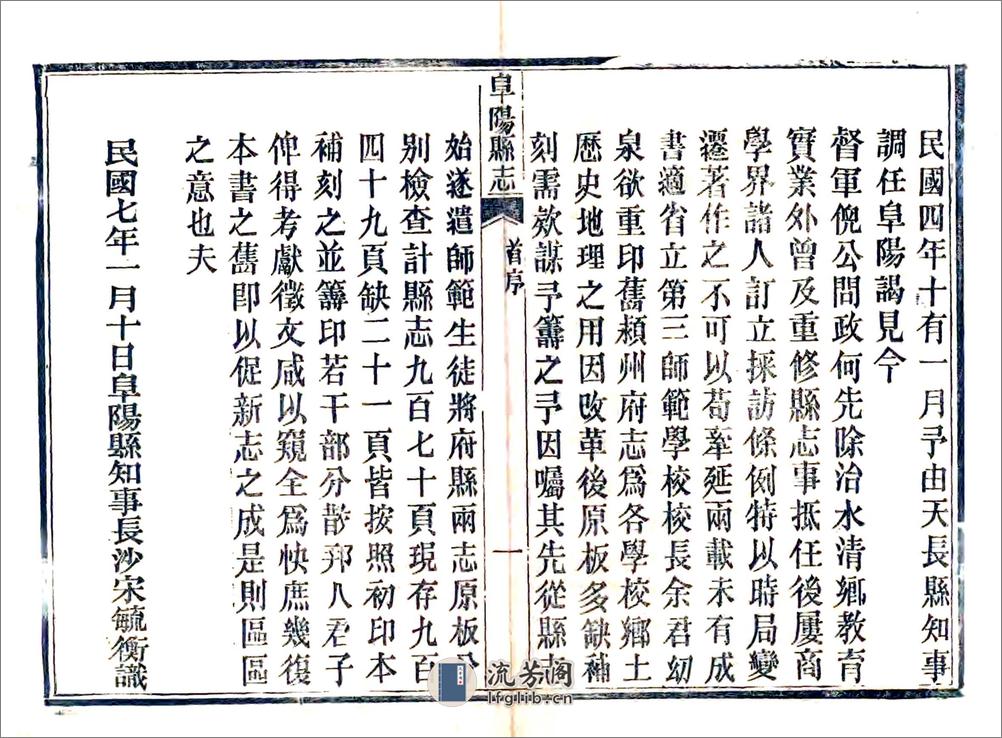 民國四年十有一月予由天長縣知事
調任阜陽謁見今
督軍倪公問政何先除治水清鄉教育
實業外曾及重修縣志事抵任後屢商
學界諸人訂立採訪條例特以時局變
遷著作之不可以苟牽延兩載未有成
書適省立第三師範學校校長余君幼
泉欲重印舊潁州府志爲各學校鄉土
歷史地理之用因改革後原板多缺補
刻需欵謀予籌之予因囑其先從縣志
阜陽縣志
首序
一
始遂遣師範生徒將府縣兩志原板分
别檢查計縣志九百七十頁現存九百
四十九頁缺二十一頁皆按照初印本
補刻之並籌印若干部分散邦人君子
俾得考獻徵文咸以窺全爲快庶幾復
本書之舊卽以促新志之成是則區區
之意也夫
民國七年一月十日阜陽縣知事長沙宋毓衡識
流芳閣
lfglib.cn